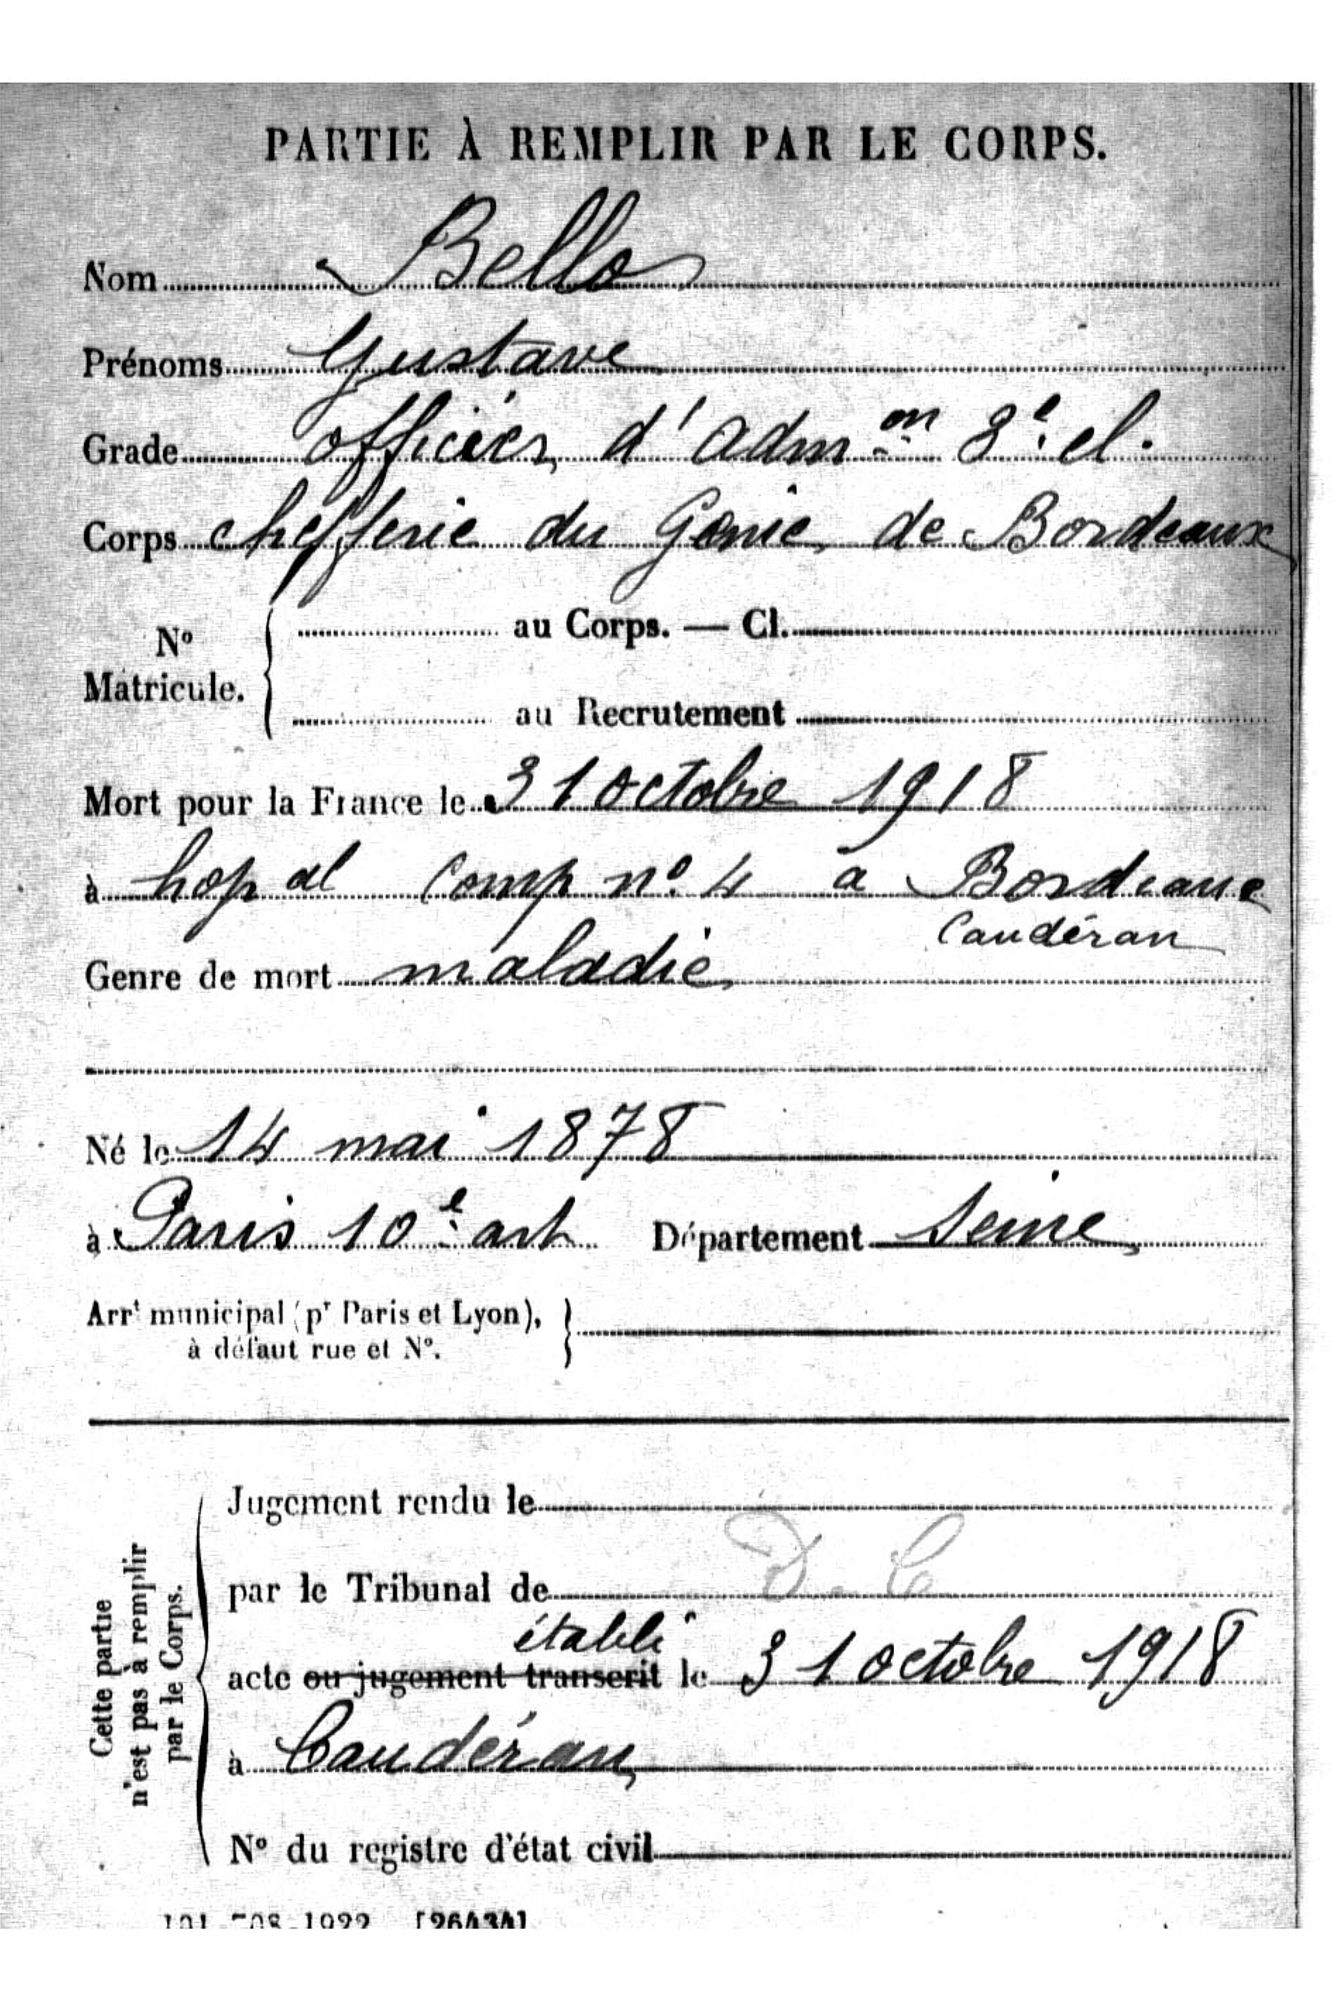 PARTIE À REMPLIR PAR LE CORPS.
Nom Bello
Prénoms Gustave
Grade officier d'adm.on 3e cl.
Corps chefferie du Génie de Bordeaux
No Matricule. { au Corps. — Cl.
au Recrutement
Mort pour la France le 31 octobre 1918
à hopal Comp no. 4 à Bordeaux
Caudéran
Genre de mort maladie
Né le 14 mai 1878
à Paris 10e art Département Seine
Arrt municipal (pr Paris et Lyon),
à défaut rue et No.
Cette partie
n'est pas à remplir
par le Corps.
Jugement rendu le
par le Tribunal de D. C
établi
acte ou jugement transcrit le 31 octobre 1918
à Caudéran
No du registre d'état civil
101-708-1922. [26434]